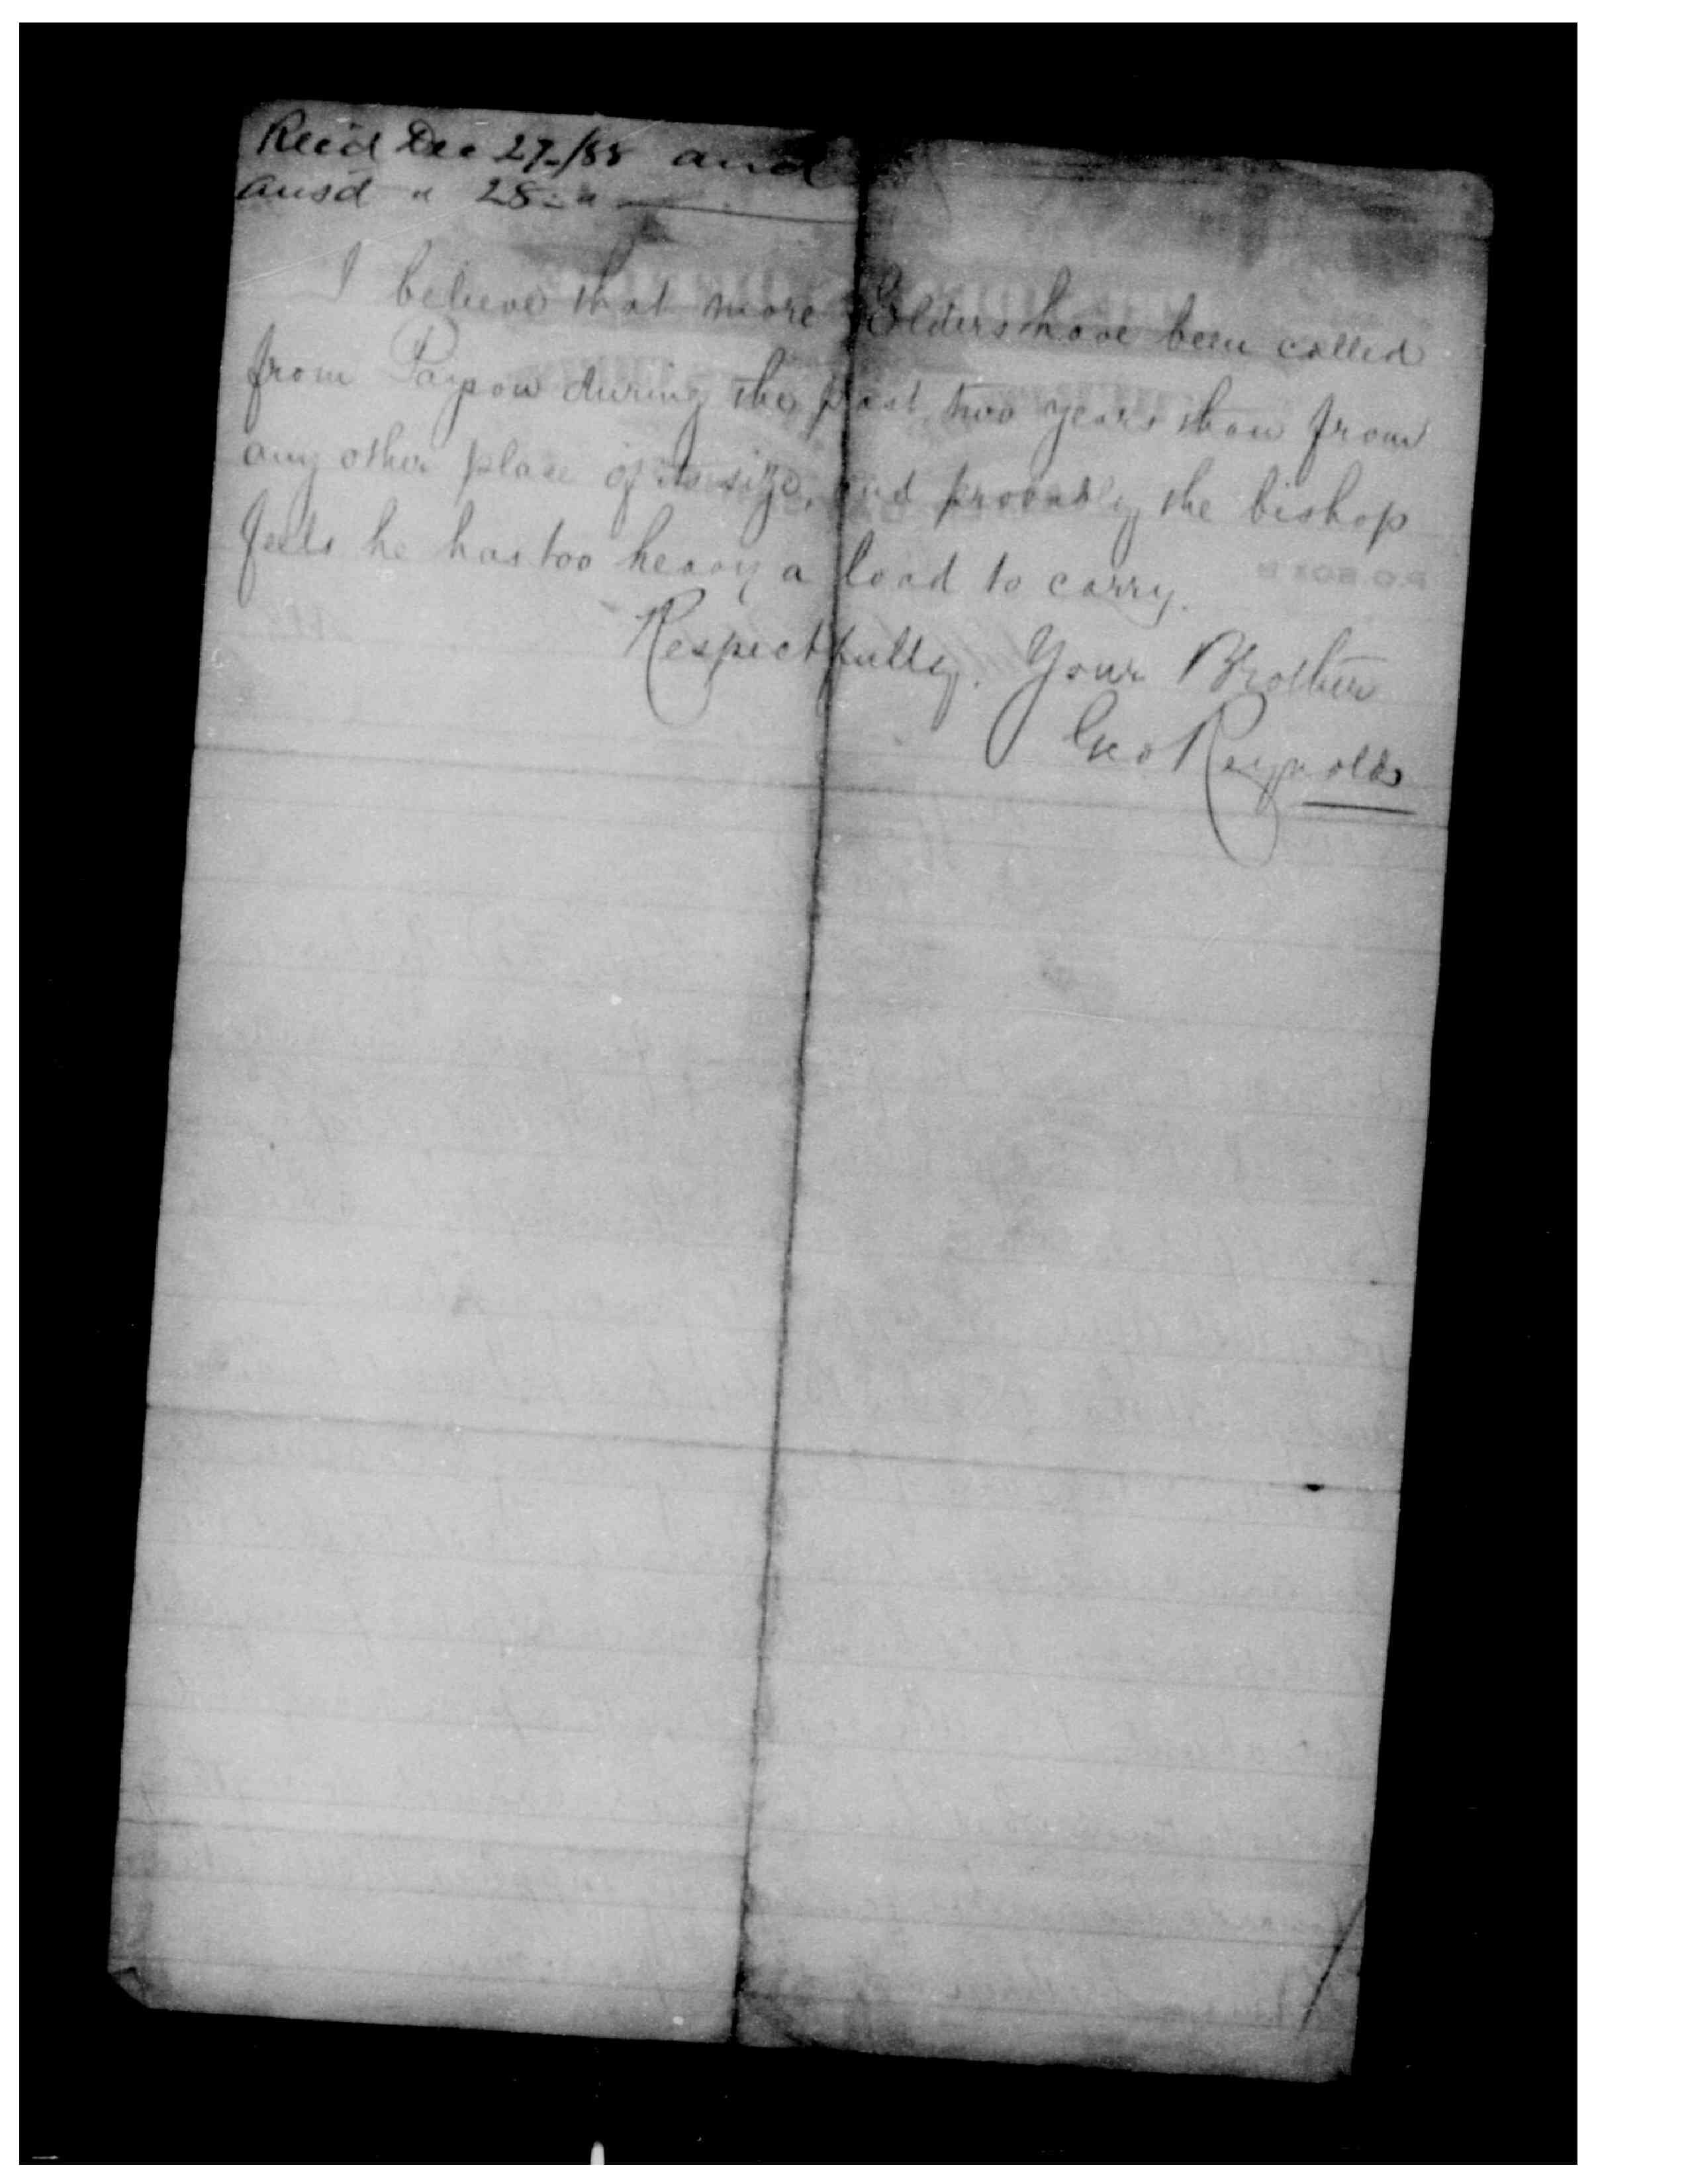 Recd Dec 27-/88 and
ansd " 28-"
I believe that more Elders have been called
from Payson during the past two years than from
any other place of its size, and probably the bishop
feels he has too heavy a load to carry.
Respectfully. Your Brother
Geo Reynolds
P.O. BOX B